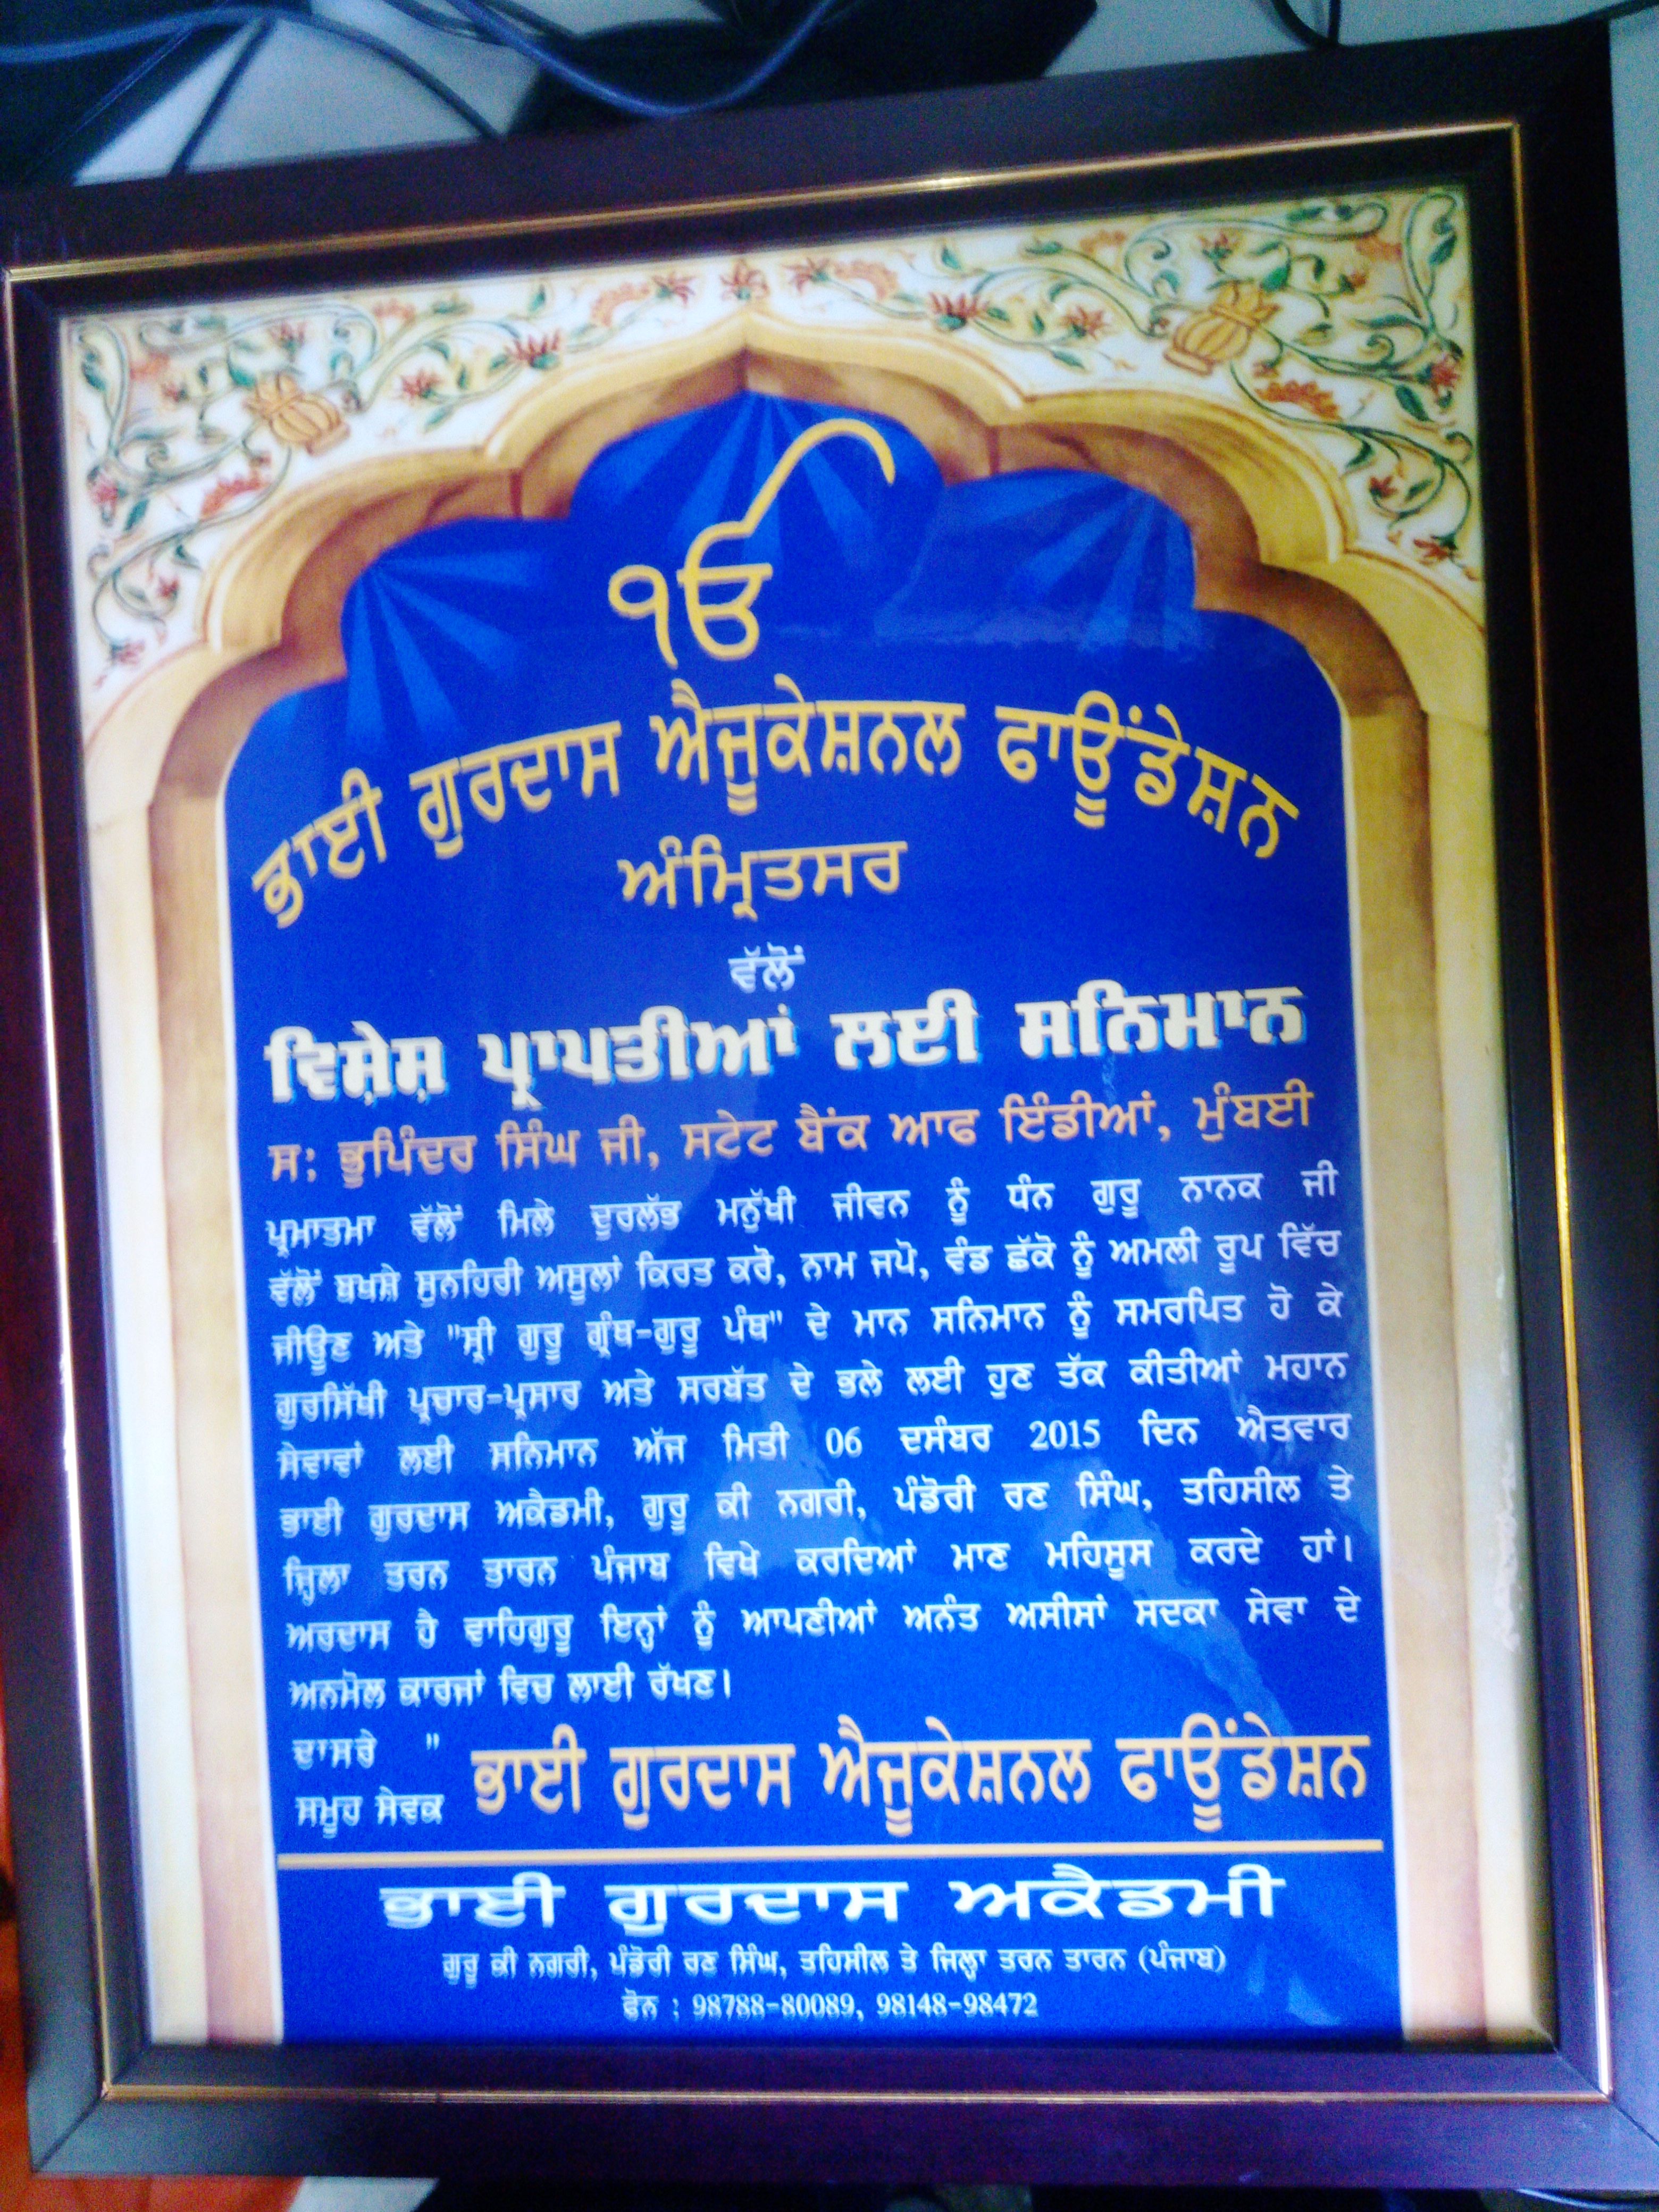 ੴ
ਭਾਈ ਗੁਰਦਾਸ ਐਜੂਕੇਸ਼ਨਲ ਫਾਊਂਡੇਸ਼ਨ
ਅੰਮ੍ਰਿਤਸਰ
ਵੱਲੋਂ
ਵਿਸ਼ੇਸ਼ ਪ੍ਰਾਪਤੀਆਂ ਲਈ ਸਨਿਮਾਨ
ਸ: ਭੁਪਿੰਦਰ ਸਿੰਘ ਜੀ, ਸਟੇਟ ਬੈਂਕ ਆਫ ਇੰਡੀਆਂ, ਮੁੰਬਈ
ਪ੍ਰਮਾਤਮਾ ਵੱਲੋਂ ਮਿਲੇ ਦੁਰਲੱਭ ਮਨੁੱਖੀ ਜੀਵਨ ਨੂੰ ਧੰਨ ਗੁਰੂ ਨਾਨਕ ਜੀ
ਵੱਲੋਂ ਬਖਸ਼ੇ ਸੁਨਹਿਰੀ ਅਸੂਲਾਂ ਕਿਰਤ ਕਰੋ, ਨਾਮ ਜਪੋ, ਵੰਡ ਛੱਕੋ ਨੂੰ ਅਮਲੀ ਰੂਪ ਵਿੱਚ
ਜੀਊਣ ਅਤੇ "ਸ੍ਰੀ ਗੁਰੂ ਗ੍ਰੰਥ-ਗੁਰੂ ਪੰਥ" ਦੇ ਮਾਨ ਸਨਿਮਾਨ ਨੂੰ ਸਮਰਪਿਤ ਹੋ ਕੇ
ਗੁਰਸਿੱਖੀ ਪ੍ਰਚਾਰ-ਪ੍ਰਸਾਰ ਅਤੇ ਸਰਬੱਤ ਦੇ ਭਲੇ ਲਈ ਹੁਣ ਤੱਕ ਕੀਤੀਆਂ ਮਹਾਨ
ਸੇਵਾਵਾਂ ਲਈ ਸਨਿਮਾਨ ਅੱਜ ਮਿਤੀ 06 ਦਸੰਬਰ 2015 ਦਿਨ ਐਤਵਾਰ
ਭਾਈ ਗੁਰਦਾਸ ਅਕੈਡਮੀ, ਗੁਰੂ ਕੀ ਨਗਰੀ, ਪੰਡੋਰੀ ਰਣ ਸਿੰਘ, ਤਹਿਸੀਲ ਤੇ
ਜ਼ਿਲਾ ਤਰਨ ਤਾਰਨ ਪੰਜਾਬ ਵਿਖੇ ਕਰਦਿਆਂ ਮਾਣ ਮਹਿਸੂਸ ਕਰਦੇ ਹਾਂ।
ਅਰਦਾਸ ਹੈ ਵਾਹਿਗੁਰੂ ਇਨ੍ਹਾਂ ਨੂੰ ਆਪਣੀਆਂ ਅਨੰਤ ਅਸੀਸਾਂ ਸਦਕਾ ਸੇਵਾ ਦੇ
ਅਨਮੋਲ ਕਾਰਜਾਂ ਵਿਚ ਲਾਈ ਰੱਖਣ।
ਦਾਸਰੇ "
ਸਮੂਹ ਸੇਵਕ ਭਾਈ ਗੁਰਦਾਸ ਐਜੂਕੇਸ਼ਨਲ ਫਾਊਂਡੇਸ਼ਨ
ਭਾਈ ਗੁਰਦਾਸ ਅਕੈਡਮੀ
ਗੁਰੂ ਕੀ ਨਗਰੀ, ਪੰਡੋਰੀ ਰਣ ਸਿੰਘ, ਤਹਿਸੀਲ ਤੇ ਜਿਲ੍ਹਾ ਤਰਨ ਤਾਰਨ (ਪੰਜਾਬ)
ਫੋਨ : 98788-80089, 98148-98472